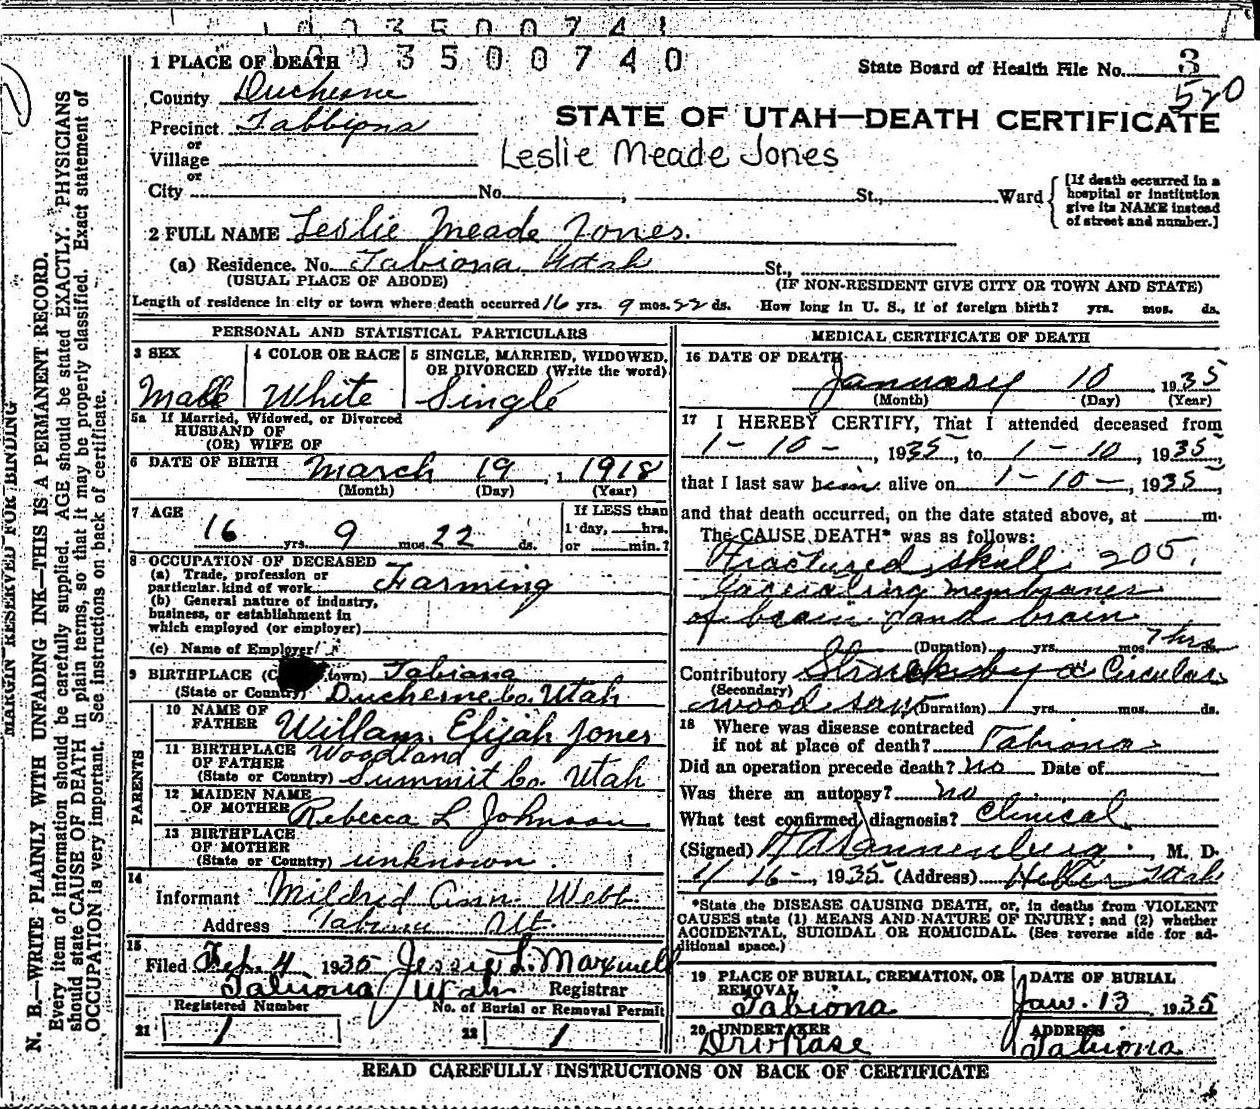 1 0 0 3 5 0 0 7 4 1
1 0 0 3 5 0 0 7 4 0
1 PLACE OF DEATH
State Board of Health File No. 3
520
County Duchesne
STATE OF UTAH—DEATH CERTIFICATE
Precinct Tabbiona
or
Village
Leslie Meade Jones
or
City No. , St., Ward
[If death occurred in a hospital or institution give its NAME instead of street and number.]
2 FULL NAME Leslie Meade Jones.
(a) Residence. No. Tabiona Utah St.,
(USUAL PLACE OF ABODE) (IF NON-RESIDENT GIVE CITY OR TOWN AND STATE)
Length of residence in city or town where death occurred 16 yrs. 9 mos. 22 ds. How long in U. S., if of foreign birth? yrs. mos. ds.
PERSONAL AND STATISTICAL PARTICULARS
3 SEX
Male
4 COLOR OR RACE
White
5 SINGLE, MARRIED, WIDOWED, OR DIVORCED (Write the word)
Single
5a If Married, Widowed, or Divorced
HUSBAND OF
(OR) WIFE OF
6 DATE OF BIRTH March 19, 1918
(Month) (Day) (Year)
7 AGE
16 yrs. 9 mos. 22 ds.
If LESS than
1 day, hrs.
or min.?
8 OCCUPATION OF DECEASED
(a) Trade, profession or
particular kind of work Farming
(b) General nature of industry,
business, or establishment in
which employed (or employer)
(c) Name of Employer
9 BIRTHPLACE town) Tabiona
(State or Country) Duchesne Co. Utah
PARENTS
10 NAME OF
FATHER Willam Elijah Jones
11 BIRTHPLACE
OF FATHER Woodland
(State or Country) Summit Co. Utah
12 MAIDEN NAME
OF MOTHER Rebecca L Johnson
13 BIRTHPLACE
OF MOTHER
(State or Country) unknown.
14
Informant Mildred Ann Webb
Address Tabiona Ut.
15
Filed Feb. 4 1935 Jessie L. Maxwell
Tabiona Utah Registrar
Registered Number No. of Burial or Removal Permit
21 1 22 1
MEDICAL CERTIFICATE OF DEATH
16 DATE OF DEATH
January 10, 1935
(Month) (Day) (Year)
17 I HEREBY CERTIFY, That I attended deceased from
1-10-, 1935, to 1-10, 1935,
that I last saw him alive on 1-10-, 1935,
and that death occurred, on the date stated above, at m.
The CAUSE DEATH* was as follows:
Fractured skull 205.
Lacerating membranes
of brain and brain
(Duration) yrs. mos. 7 hrs ds.
Contributory Struck by a Circular
(Secondary)
wood saw (Duration) yrs. mos. ds.
18 Where was disease contracted
if not at place of death? Tabiona
Did an operation precede death? no Date of
Was there an autopsy? no
What test confirmed diagnosis? Clinical
(Signed) , M. D.
1935 (Address) Heber Utah
*State the DISEASE CAUSING DEATH, or, in deaths from VIOLENT
CAUSES state (1) MEANS AND NATURE OF INJURY; and (2) whether
ACCIDENTAL, SUICIDAL OR HOMICIDAL. (See reverse side for ad-
ditional space.)
19 PLACE OF BURIAL, CREMATION, OR
REMOVAL
Tabiona
DATE OF BURIAL
Jan. 13, 1935
20 UNDERTAKER
ADDRESS
Tabiona
READ CAREFULLY INSTRUCTIONS ON BACK OF CERTIFICATE
MARGIN RESERVED FOR BINDING
N. B.—WRITE PLAINLY WITH UNFADING INK—THIS IS A PERMANENT RECORD.
Every item of information should be carefully supplied. AGE should be stated EXACTLY. PHYSICIANS
should state CAUSE OF DEATH in plain terms, so that it may be properly classified. Exact statement of
OCCUPATION is very important. See instructions on back of certificate.